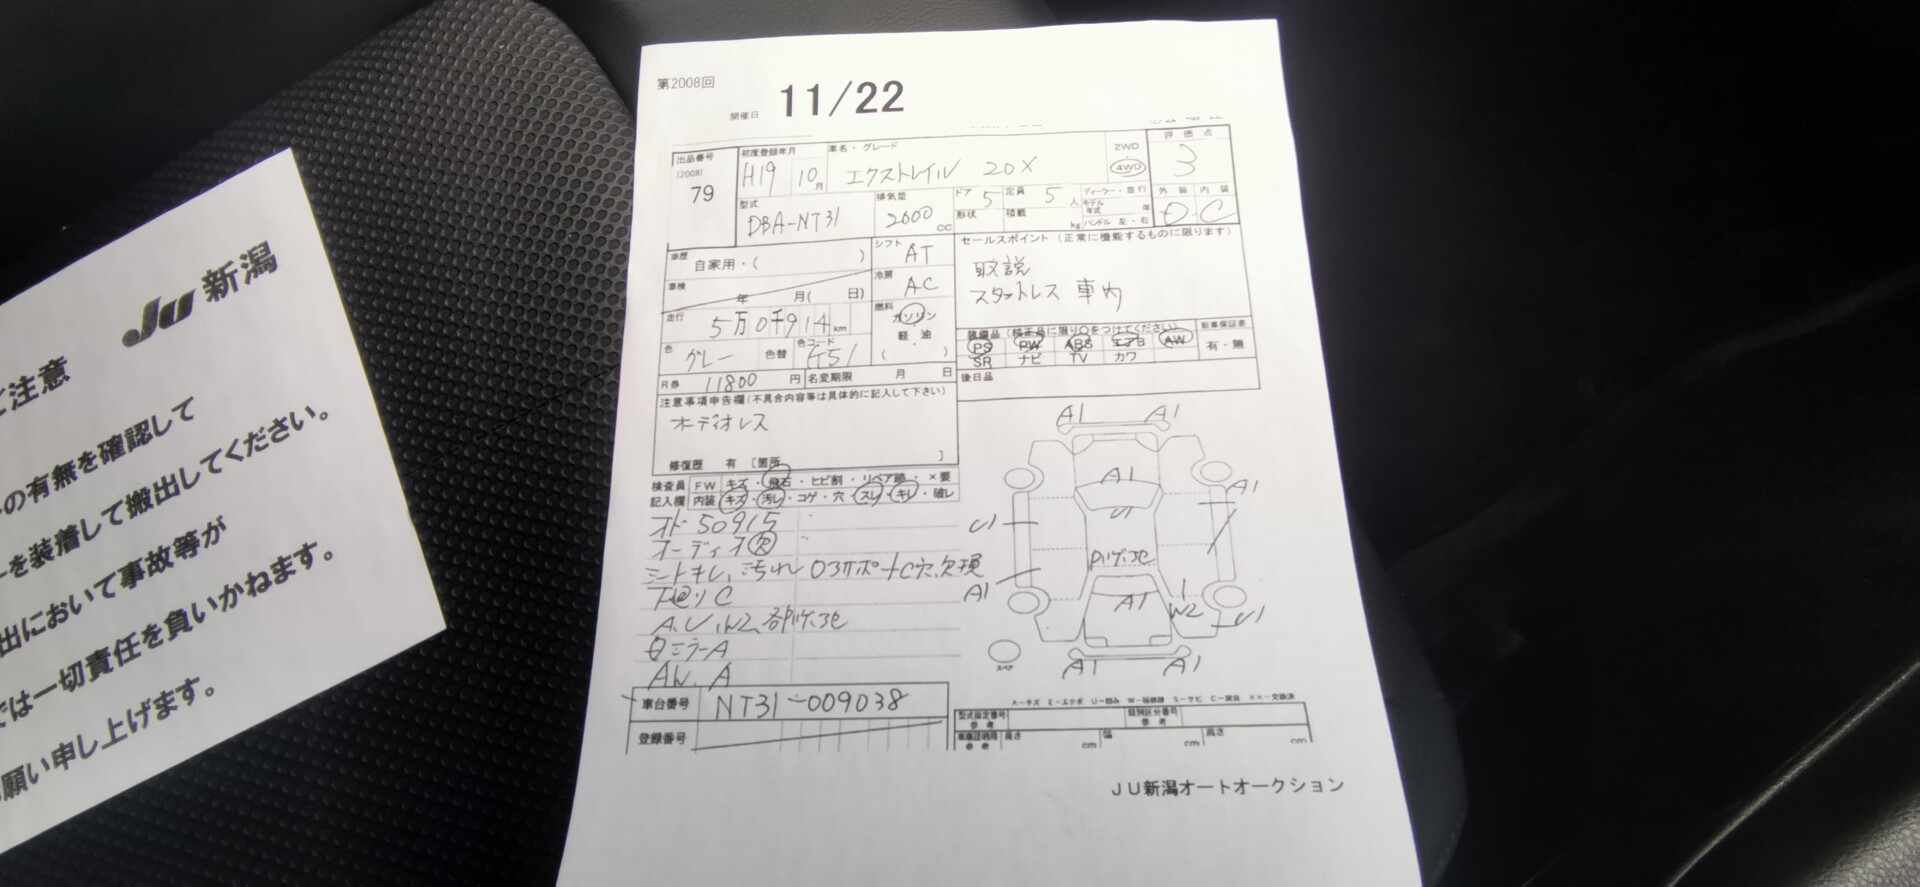 Ju 新潟
ご注意
の有無を確認して
ーを装着して搬出してください。
出において事故等が
では一切責任を負いかねます。
願い申し上げます。
第2008回
開催日 11/22
出品番号 (2008) 79
初度登録年月 H19 10月
車名・グレード エクストレイル 20X
2WD 4WD
評価点 3
型式 DBA-NT31
排気量 2000 CC
ドア 5 定員 5人
形状 積載 kg
ディーラー・並行
モデル年式 年
ハンドル 左・右
外装 内装
D C
車歴 自家用・( )
シフト AT
セールスポイント (正常に機能するものに限ります)
取説
スタットレス 車内
車検 年 月( 日)
冷房 AC
走行 5万0千914km
燃料 ガソリン・軽油 ( )
色 グレー 色替 色コード K51
装備品 (純正品に限り○をつけてください)
PS PW ABS エアB AW
SR ナビ TV カワ
新車保証書 有・無
R券 11800 円 名変期限 月 日
後日品
注意事項申告欄(不具合内容等は具体的に記入して下さい)
オーディオレス
修復歴 有 [箇所 ]
検査員 FW キズ・飛石・ヒビ割・リペア跡・×要
記入欄 内装 キズ・汚レ・コゲ・穴・スレ・キレ・破レ
オド 50915
オーディオ欠
シートキレ、汚れ
下回りC
ミラーA
A1 A1
A1
A1
U1
U1
A1
A1
W2
U1
スペア
A1 A1
A-キズ E-エクボ U-凹み W-補修跡 S-サビ C-腐食 XX-交換済
車台番号 NT31-009038
登録番号
型式指定番号 参考 類別区分番号 参考
車庫証明用 参考 長さ cm 幅 cm 高さ cm
JU新潟オートオークション